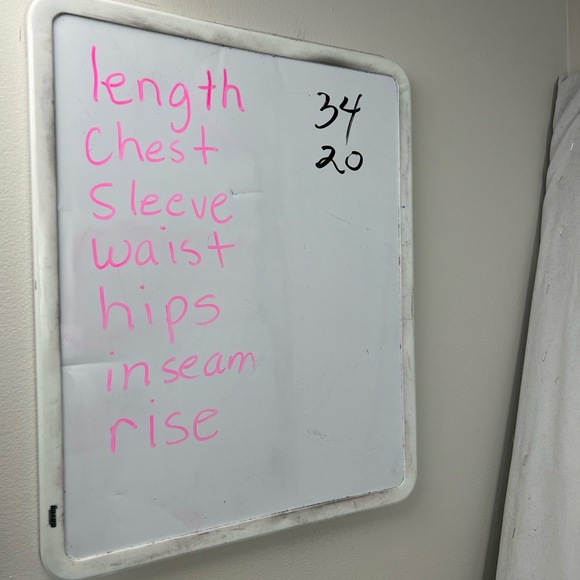 length 34
Chest 20
Sleeve
waist
hips
inseam
rise